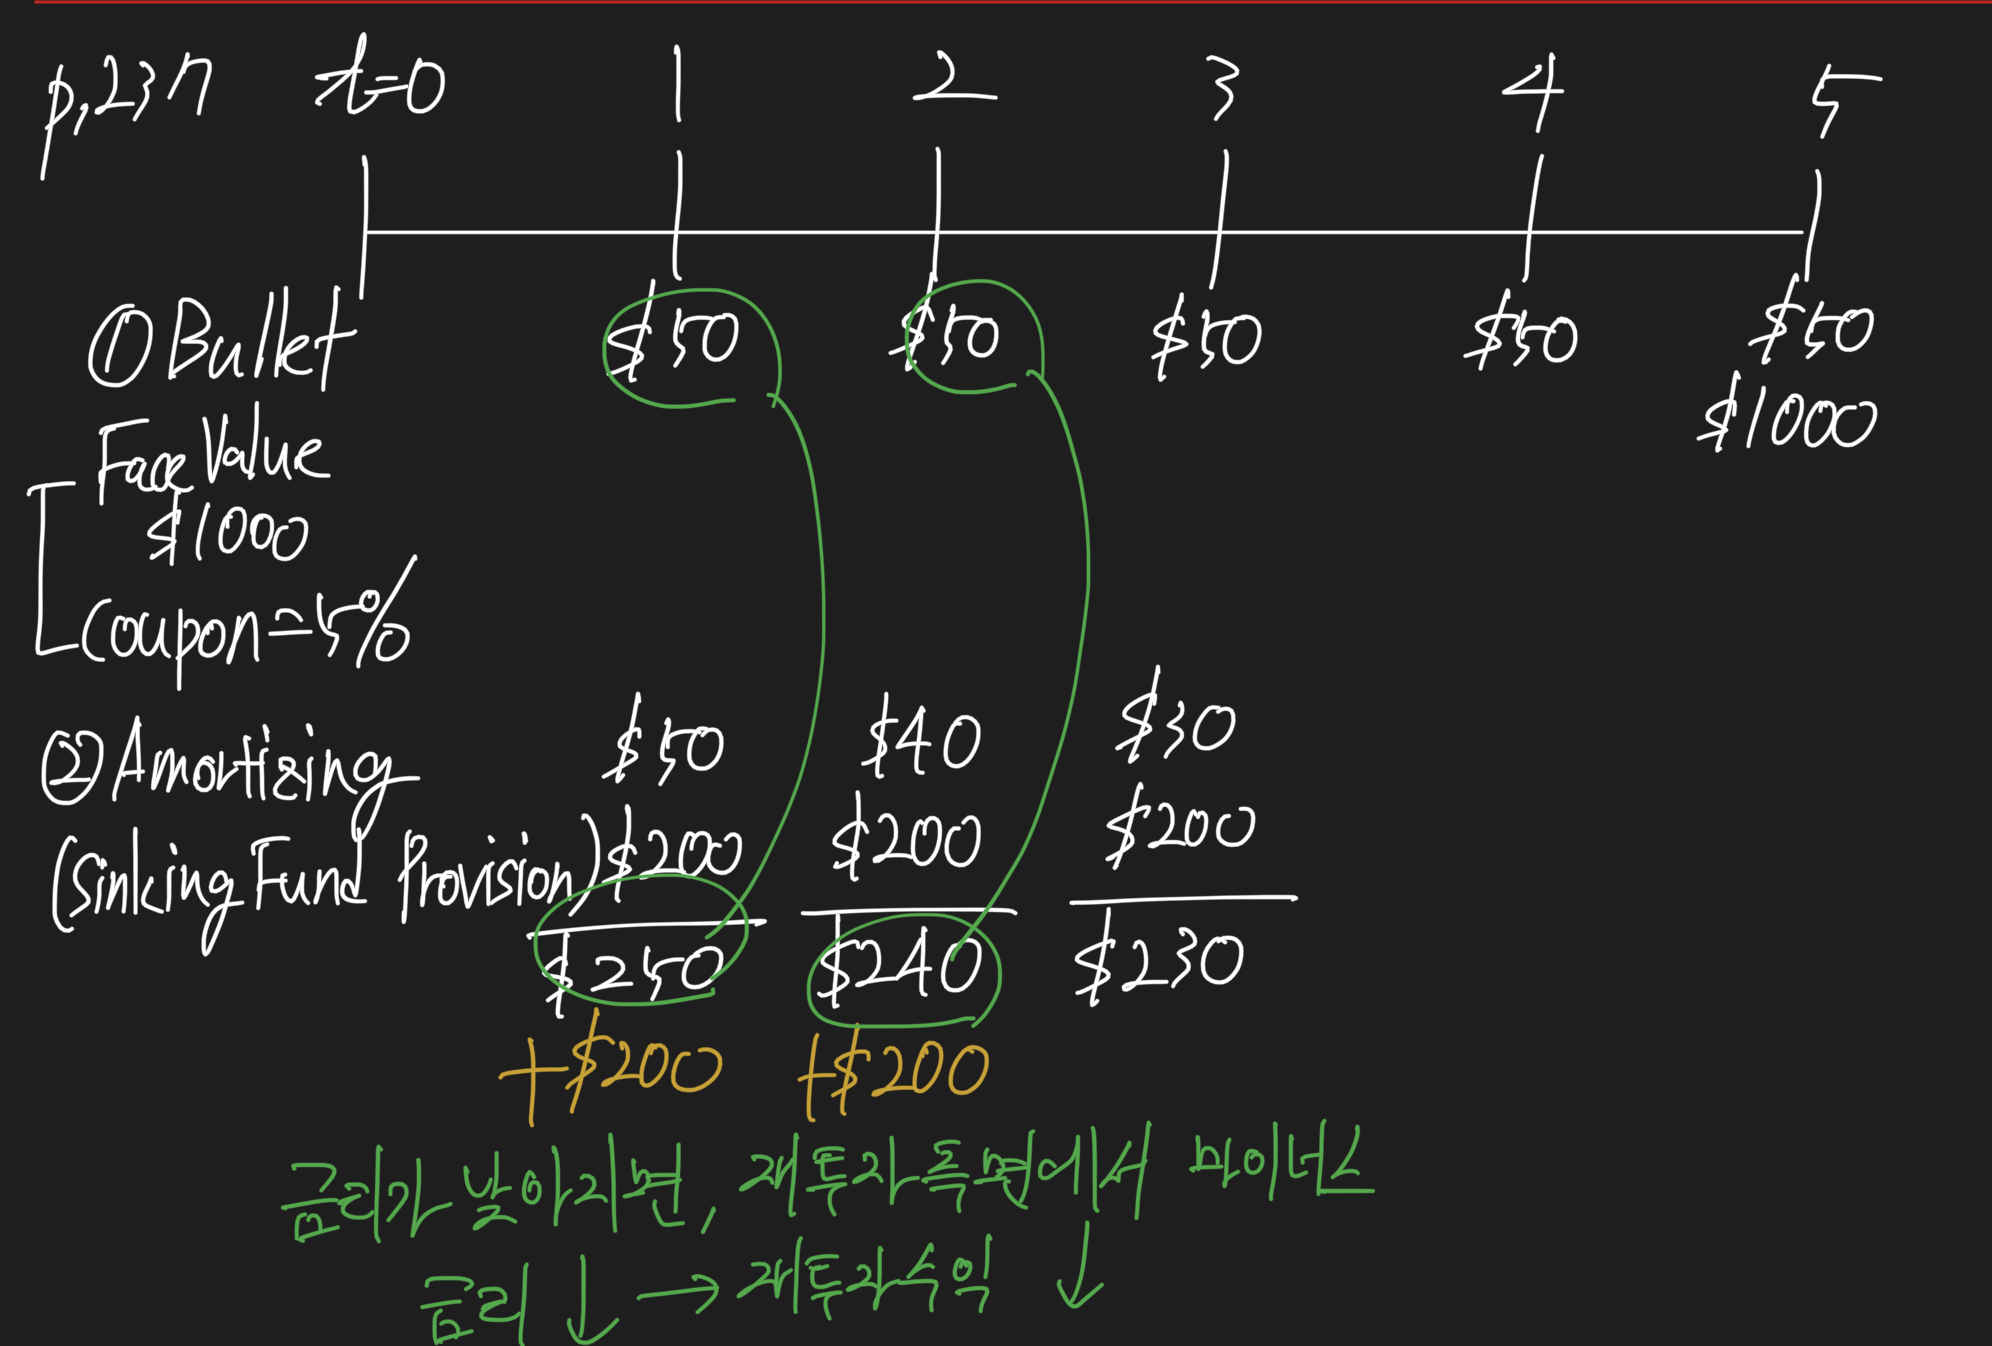 p.237 t=0 1 2 3 4 5
① Bullet $50 $50 $50 $50 $50
$1000
Face Value
$1000
Coupon=5%
② Amortizing $50 $40 $30
(Sinking Fund Provision) $200 $200 $200
$250 $240 $230
+$200 +$200
금리가 낮아지면, 재투자측면에서 마이너스
금리 ↓ → 재투자수익 ↓